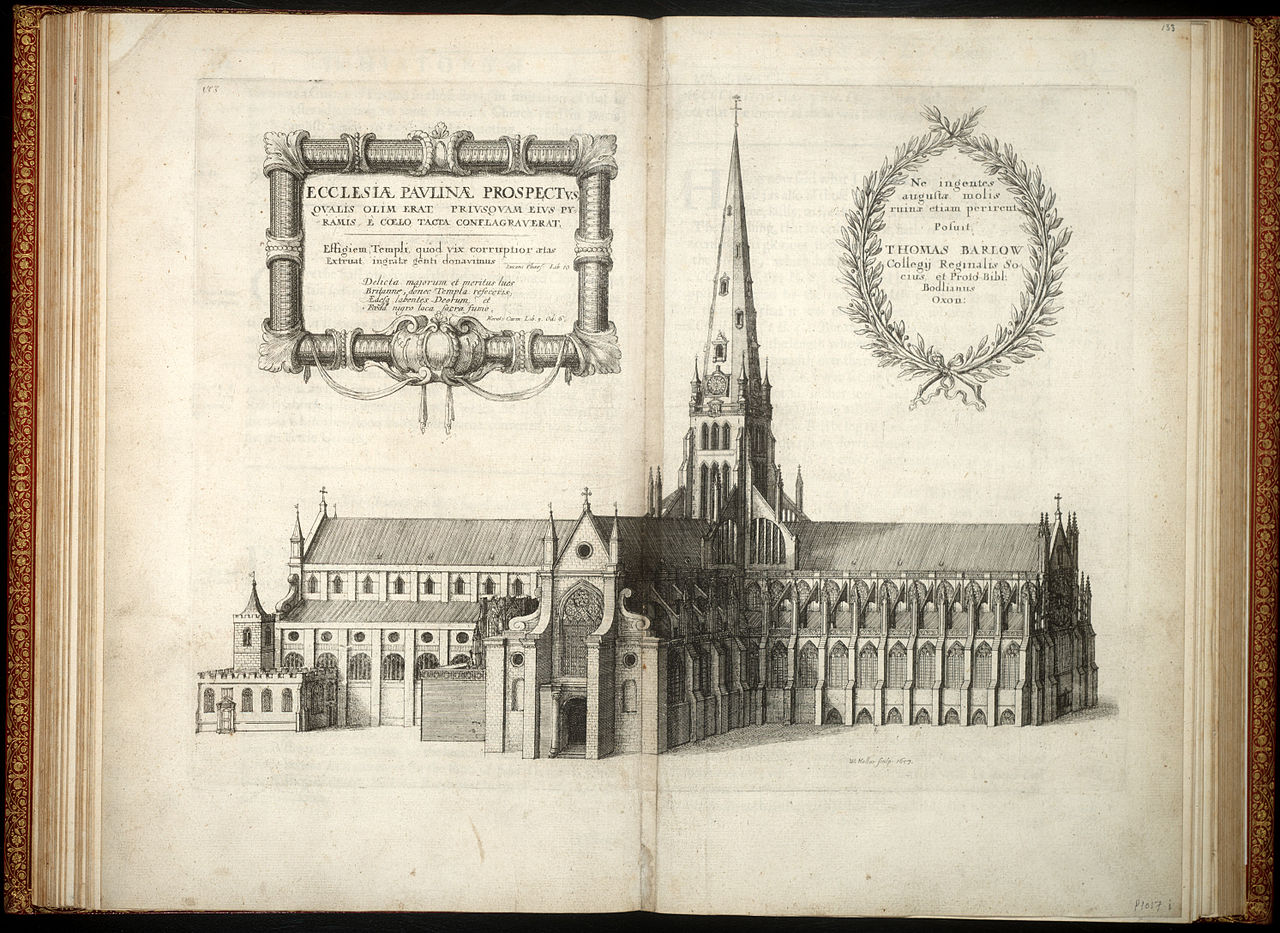 133
153
ECCLESIÆ PAVLINÆ PROSPECTVS
QVALIS OLIM ERAT PRIVSQVAM EIVS PY-
RAMIS, E COELO TACTA CONFLAGRAVERAT.
Effigiem Templi, quod vix corruptior ætas
Extruat, ingratæ genti donavimus
Lucani Phars. Lib 10
Delicta majorum et meritus lues
Britanne, donec Templa refeceris,
Ædesq labentes Deorum, et
Fœda nigro loca sacra fumo.
Horat: Carm. Lib. 3. Od: 6.
Ne ingentes
augustæ molis
ruinæ etiam perirent
Posuit,
THOMAS BARLOW
Collegij Reginalis So-
cius, et Proto Bibl:
Bodlianus
Oxon:
W: Hollar sculp. 1657.
P1017 i